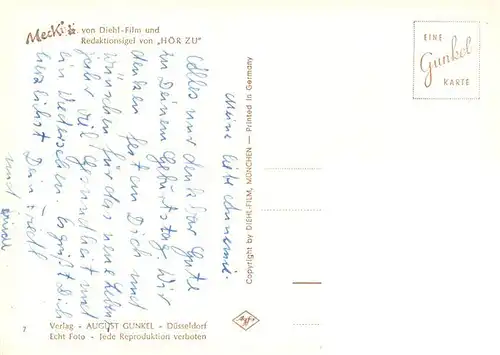 Mecki
von Diehl-Film und
Redaktionsigel von „HÖR ZU"
EINE
Gunkel
KARTE
Meine liebe Annemie.
Alles nur denkbar Gute
zu Deinem Geburtstag. Wir
denken fest an Dich und
wünschen für das neue Lebens
jahr viel Gesundheit und
ein Wiedersehen. Es grüßt Dich
herzlichst Dein
und
Copyright by DIEHL-FILM, MÜNCHEN — Printed in Germany
Agfa
7
Verlag - AUGUST GUNKEL - Düsseldorf
Echt Foto - Jede Reproduktion verboten